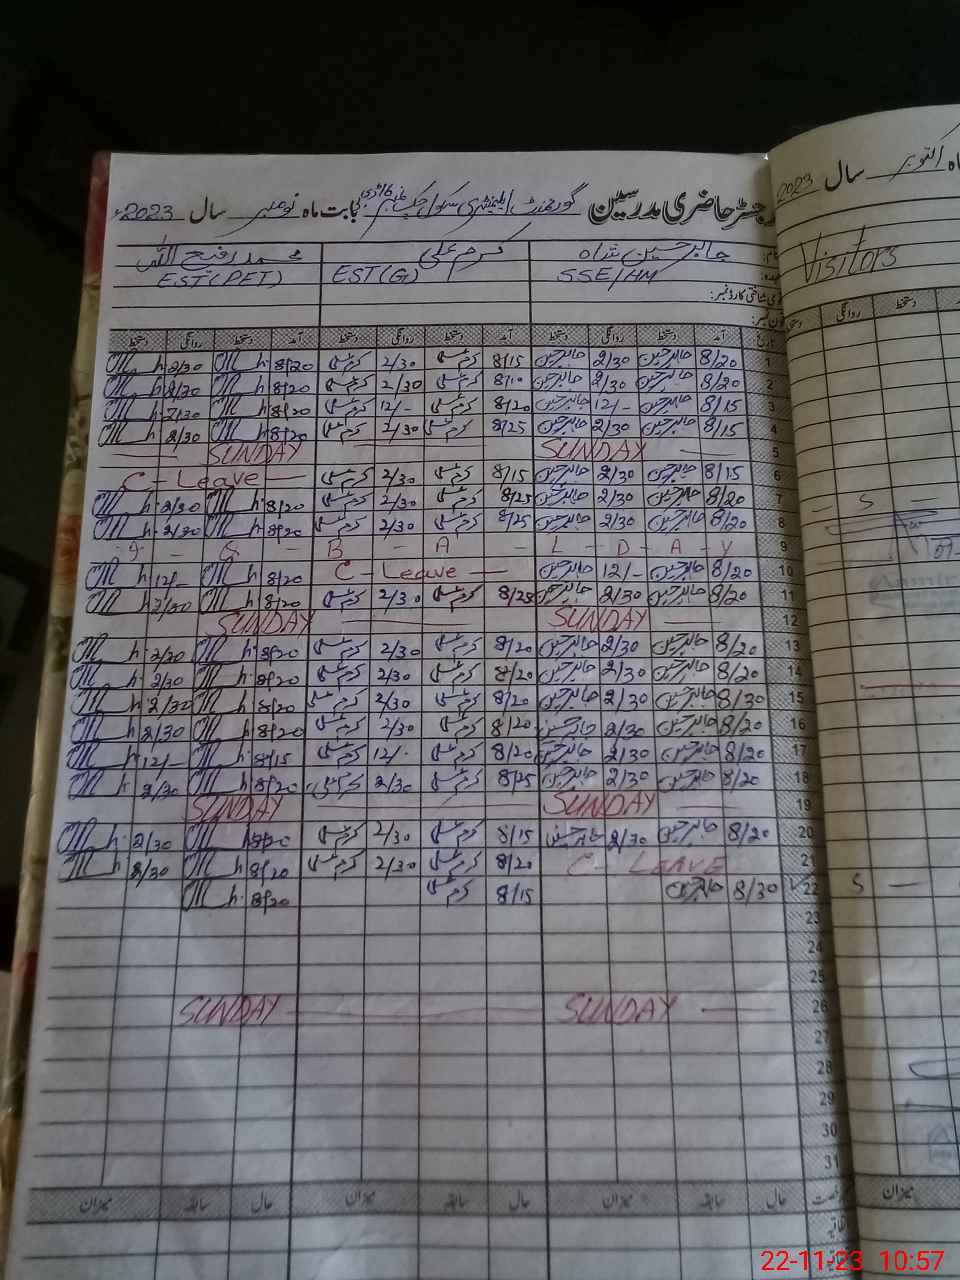 رجسٹر حاضری مدرسین گورنمنٹ ایلیمنٹری سکول چک نمبر 16 بابت ماہ نومبر سال 2023ء
ماہ اکتوبر سال 2023
جابر حسین شاہ کرم علی محمد رفیع اللہ
SSE/HM EST(G) EST(PET)
Visitors
شناختی کارڈ نمبر:
فون نمبر:
تاریخ آمد دستخط روانگی دستخط آمد دستخط روانگی دستخط آمد دستخط روانگی دستخط
دستخط روانگی
1 8/20 جابر حسین 2/30 جابر حسین 8/15 کرم علی 2/30 کرم علی 8/20 2/30
2 8/20 جابر حسین 2/30 جابر حسین 8/10 کرم علی 2/30 کرم علی 8/20 2/30
3 8/15 جابر حسین 12/- جابر حسین 8/20 کرم علی 12/- کرم علی 8/20
4 8/15 جابر حسین 2/30 جابر حسین 8/25 کرم علی 2/30 کرم علی 8/20 2/30
5 SUNDAY SUNDAY
6 8/15 جابر حسین 2/30 جابر حسین 8/15 کرم علی 2/30 کرم علی C - Leave -
7 8/20 جابر حسین 2/30 جابر حسین 8/25 کرم علی 2/30 کرم علی 8/20 2/30
- S -
8 8/20 جابر حسین 2/30 جابر حسین 8/25 کرم علی 2/30 کرم علی 8/20 2/30
9 - B - A - L - D - A - Y
10 8/20 جابر حسین 12/- جابر حسین C - Leave - 8/20 12/-
11 8/20 جابر حسین 2/30 جابر حسین 8/25 کرم علی 2/30 کرم علی 8/20 2/30
12 SUNDAY SUNDAY
13 8/20 جابر حسین 2/30 جابر حسین 8/20 کرم علی 2/30 کرم علی 8/20 2/30
14 8/20 جابر حسین 2/30 جابر حسین 8/20 کرم علی 2/30 کرم علی 8/20 2/30
15 8/30 جابر حسین 2/30 جابر حسین 8/20 کرم علی 2/30 کرم علی 8/20 2/30
16 8/20 جابر حسین 2/30 جابر حسین 8/20 کرم علی 2/30 کرم علی 8/20 2/30
17 8/20 جابر حسین 2/30 جابر حسین 8/20 کرم علی 12/- کرم علی 8/15 12/-
18 8/20 جابر حسین 2/30 جابر حسین 8/25 کرم علی 2/30 کرم علی 8/20 2/30
19 SUNDAY SUNDAY
20 8/20 جابر حسین 2/30 جابر حسین 8/15 کرم علی 2/30 کرم علی 2/30
21 C - LEAVE 8/20 کرم علی 2/30 کرم علی 8/20 2/30
22 8/30 جابر حسین 8/15 کرم علی 8/20
S -
23
24
25
26 SUNDAY SUNDAY
27
28
29
30
31
حال سابقہ میزان حال سابقہ میزان حال سابقہ میزان
میزان
22-11-23 10:57